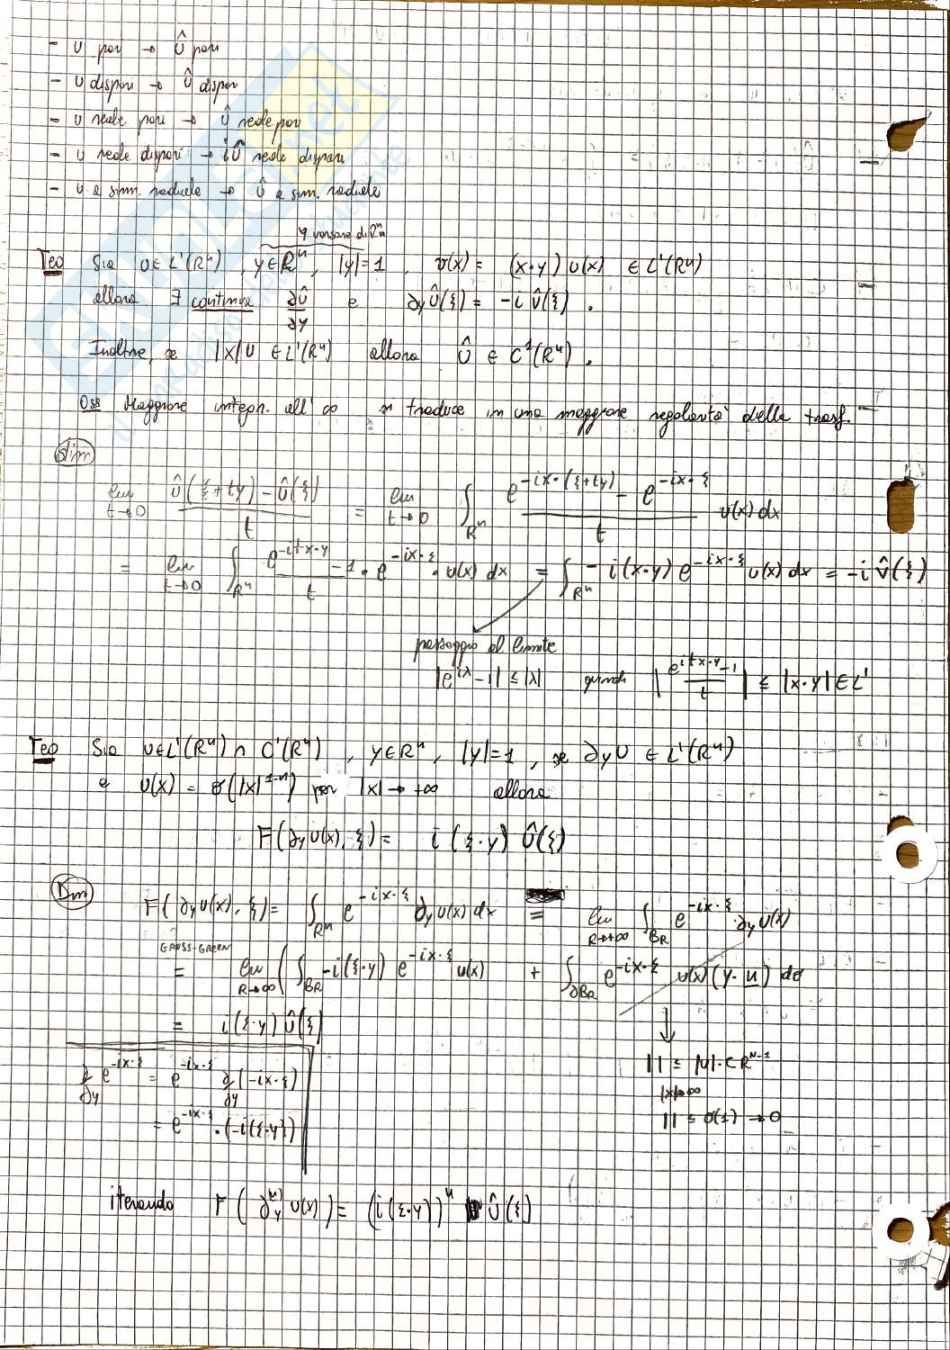 - u pari → û pari
- u dispari → û dispari
- u reale pari → û reale pari
- u reale dispari → iû reale dispari
- u a simm. radiale → û a sim. radiale
y versore di Rⁿ
Teo Sia u∈L¹(Rⁿ), y∈Rⁿ, |y|=1, v(x) = (x·y) u(x) ∈ L¹(Rⁿ)
allora ∃ continua ∂û/∂y e ∂yû(ξ) = -i v̂(ξ).
Inoltre, se |x|u ∈ L¹(Rⁿ) allora û ∈ C¹(Rⁿ).
Oss Maggiore integr. all'∞ si traduce in una maggiore regolarità della trasf.
dim
lim t→0 (û(ξ+ty) - û(ξ))/t = lim t→0 ∫Rⁿ (e^(-ix·(ξ+ty)) - e^(-ix·ξ))/t u(x) dx
= lim t→0 ∫Rⁿ (e^(-itx·y) - 1)/t · e^(-ix·ξ) · u(x) dx = ∫Rⁿ -i(x·y) e^(-ix·ξ) u(x) dx = -i v̂(ξ)
passaggio al limite
|e^(iλ) - 1| ≤ |λ| quindi |(e^(itx·y) - 1)/t| ≤ |x·y| ∈ L¹
Teo Sia u∈L¹(Rⁿ) ∩ C¹(Rⁿ), y∈Rⁿ, |y|=1, se ∂yu ∈ L¹(Rⁿ)
e u(x) = o(|x|^(1-n)) per |x| → +∞ allora
F(∂yu(x), ξ) = i(ξ·y) û(ξ)
Dim
F(∂yu(x), ξ) = ∫Rⁿ e^(-ix·ξ) ∂yu(x) dx = lim R→+∞ ∫BR e^(-ix·ξ) · ∂yu(x)
GAUSS-GREEN
= lim R→∞ (∫BR -i(ξ·y) e^(-ix·ξ) u(x) + ∫∂BR e^(-ix·ξ) u(x) (y·n) dσ
= i(ξ·y) û(ξ)
∂/∂y e^(-ix·ξ) = e^(-ix·ξ) ∂/∂y (-ix·ξ)
= e^(-ix·ξ) · (-i(ξ·y))
|| ≤ |u|·C R^(n-1)
|x|→∞
|| ≤ o(1) → 0
iterando F(∂y^(n) u(x)) = (i(ξ·y))ⁿ û(ξ)